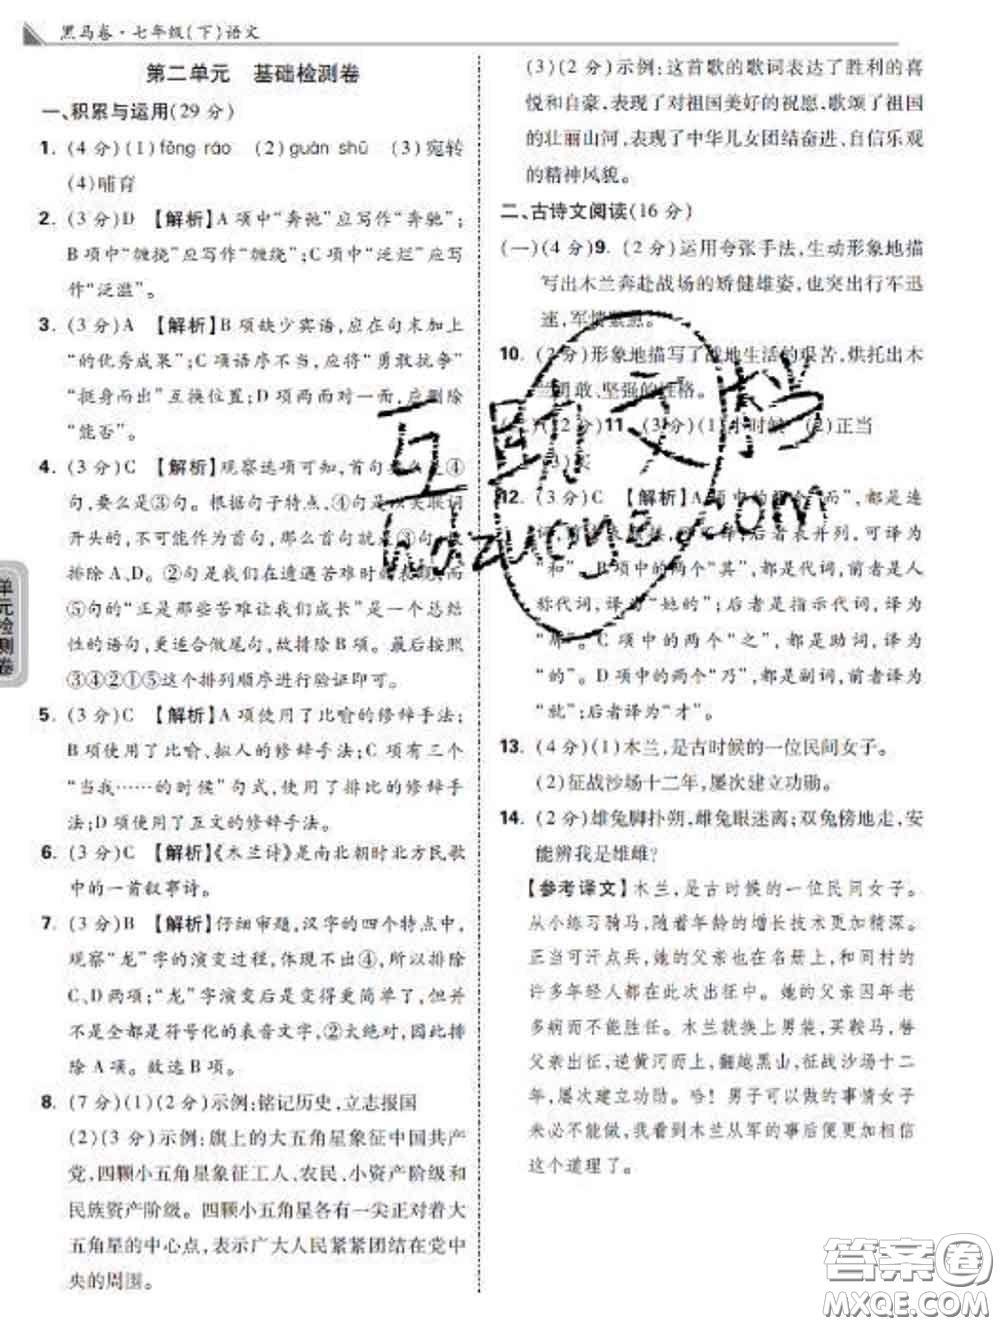 黑马卷·七年级(下)语文
第二单元 基础检测卷
一、积累与运用(29 分)
1. (4 分)(1)fēng ráo (2)guàn shū (3)宛转
(4)哺育
2. (3 分)D 【解析】A 项中“奔弛”应写作“奔驰”;
B 项中“缠挠”应写作“缠绕”;C 项中“泛烂”应写
作“泛滥”。
3. (3 分)A 【解析】B 项缺少宾语,应在句末加上
“的优秀成果”;C 项语序不当,应将“勇敢抗争”
“挺身而出”互换位置;D 项两面对一面,应删除
“能否”。
4. (3 分)C 【解析】观察选项可知,首句要么是④
句,要么是③句。根据句子特点,④句是以关联词
开头的,不可能作为首句,那么首句就是③句,
排除 A、D。②句是我们在遭遇苦难时的表现,而
⑤句的“正是那些苦难让我们成长”是一个总结
性的语句,更适合做尾句,故排除 B 项。最后按照
③④②①⑤这个排列顺序进行验证即可。
5. (3 分)C 【解析】A 项使用了比喻的修辞手法;
B 项使用了比喻、拟人的修辞手法;C 项有三个
“当我……的时候”句式,使用了排比的修辞手
法;D 项使用了互文的修辞手法。
6. (3 分)C 【解析】《木兰诗》是南北朝时北方民歌
中的一首叙事诗。
7. (3 分)B 【解析】仔细审题,汉字的四个特点中,
观察“龙”字的演变过程,体现不出④,所以排除
C、D 两项;“龙”字演变后是变得更简单了,但并
不是全部是符号化的表音文字,②太绝对,因此排
除 A 项。故选 B 项。
8. (7 分)(1)(2 分)示例:铭记历史,立志报国
(2)(3 分)示例:旗上的大五角星象征中国共产
党,四颗小五角星象征工人、农民、小资产阶级和
民族资产阶级。四颗小五角星各有一尖正对着大
五角星的中心点,表示广大人民紧紧团结在党中
央的周围。
(3)(2 分)示例:这首歌的歌词表达了胜利的喜
悦和自豪,表现了对祖国美好的祝愿,歌颂了祖国
的壮丽山河,表现了中华儿女团结奋进、自信乐观
的精神风貌。
二、古诗文阅读(16 分)
(一)(4 分)9. (2 分)运用夸张手法,生动形象地描
写出木兰奔赴战场的矫健雄姿,也突出行军迅
速,军情紧急。
10. (2 分)形象地描写了战地生活的艰苦,烘托出木
兰勇敢、坚强的性格。
(12 分)11. (3 分)(1)小时候 (2)正当
12. (3 分)C 【解析】A 项中的两个“而”,都是连
词,前者 后者表并列,可译为
“和”。B 项中的两个“其”,都是代词,前者是人
称代词,译为“她的”;后者是指示代词,译为
“那”。C 项中的两个“之”,都是助词,译为
“的”。D 项中的两个“乃”,都是副词,前者译为
“就”;后者译为“才”。
13. (4 分)(1)木兰,是古时候的一位民间女子。
(2)征战沙场十二年,屡次建立功勋。
14. (2 分)雄兔脚扑朔,雌兔眼迷离;双兔傍地走,安
能辨我是雄雌?
【参考译文】木兰,是古时候的一位民间女子。
从小练习骑马,随着年龄的增长技术更精深。
正当可汗点兵,她的父亲也在名册上,和同村的
许多年轻人都在此次出征中。她的父亲因年老
多病而不能胜任。木兰就换上男装,买鞍马,替
父亲出征,逆黄河而上,翻越黑山,征战沙场十二
年,屡次建立功勋。哈!男子可以做的事情女子
未必不能做,我看到木兰从军的事后便更加相信
这个道理了。
单元检测卷
互助文档
hdzuoye.com
答案圈
MXQE.COM